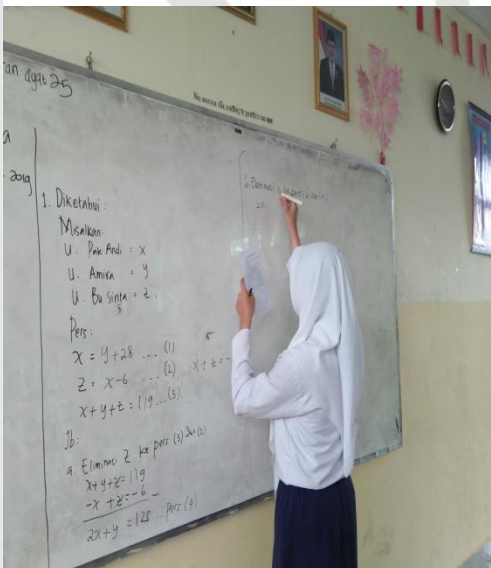 ayat 25
a
2019
1. Diketahui :
Misalkan :
U. Pak Andi = x
U. Amira = y
U. Bu Sinta = z
Pers :
x = y+28 ... (1)
z = x-6 ... (2)
x+y+z = 119 ... (3)
x + z = -
Jb :
a. Eliminasi z ke pers (3) dan (2)
x+y+z = 119
-x +z = -6 -
2x+y = 125 .. pers (4)
b. Eliminasi
2x